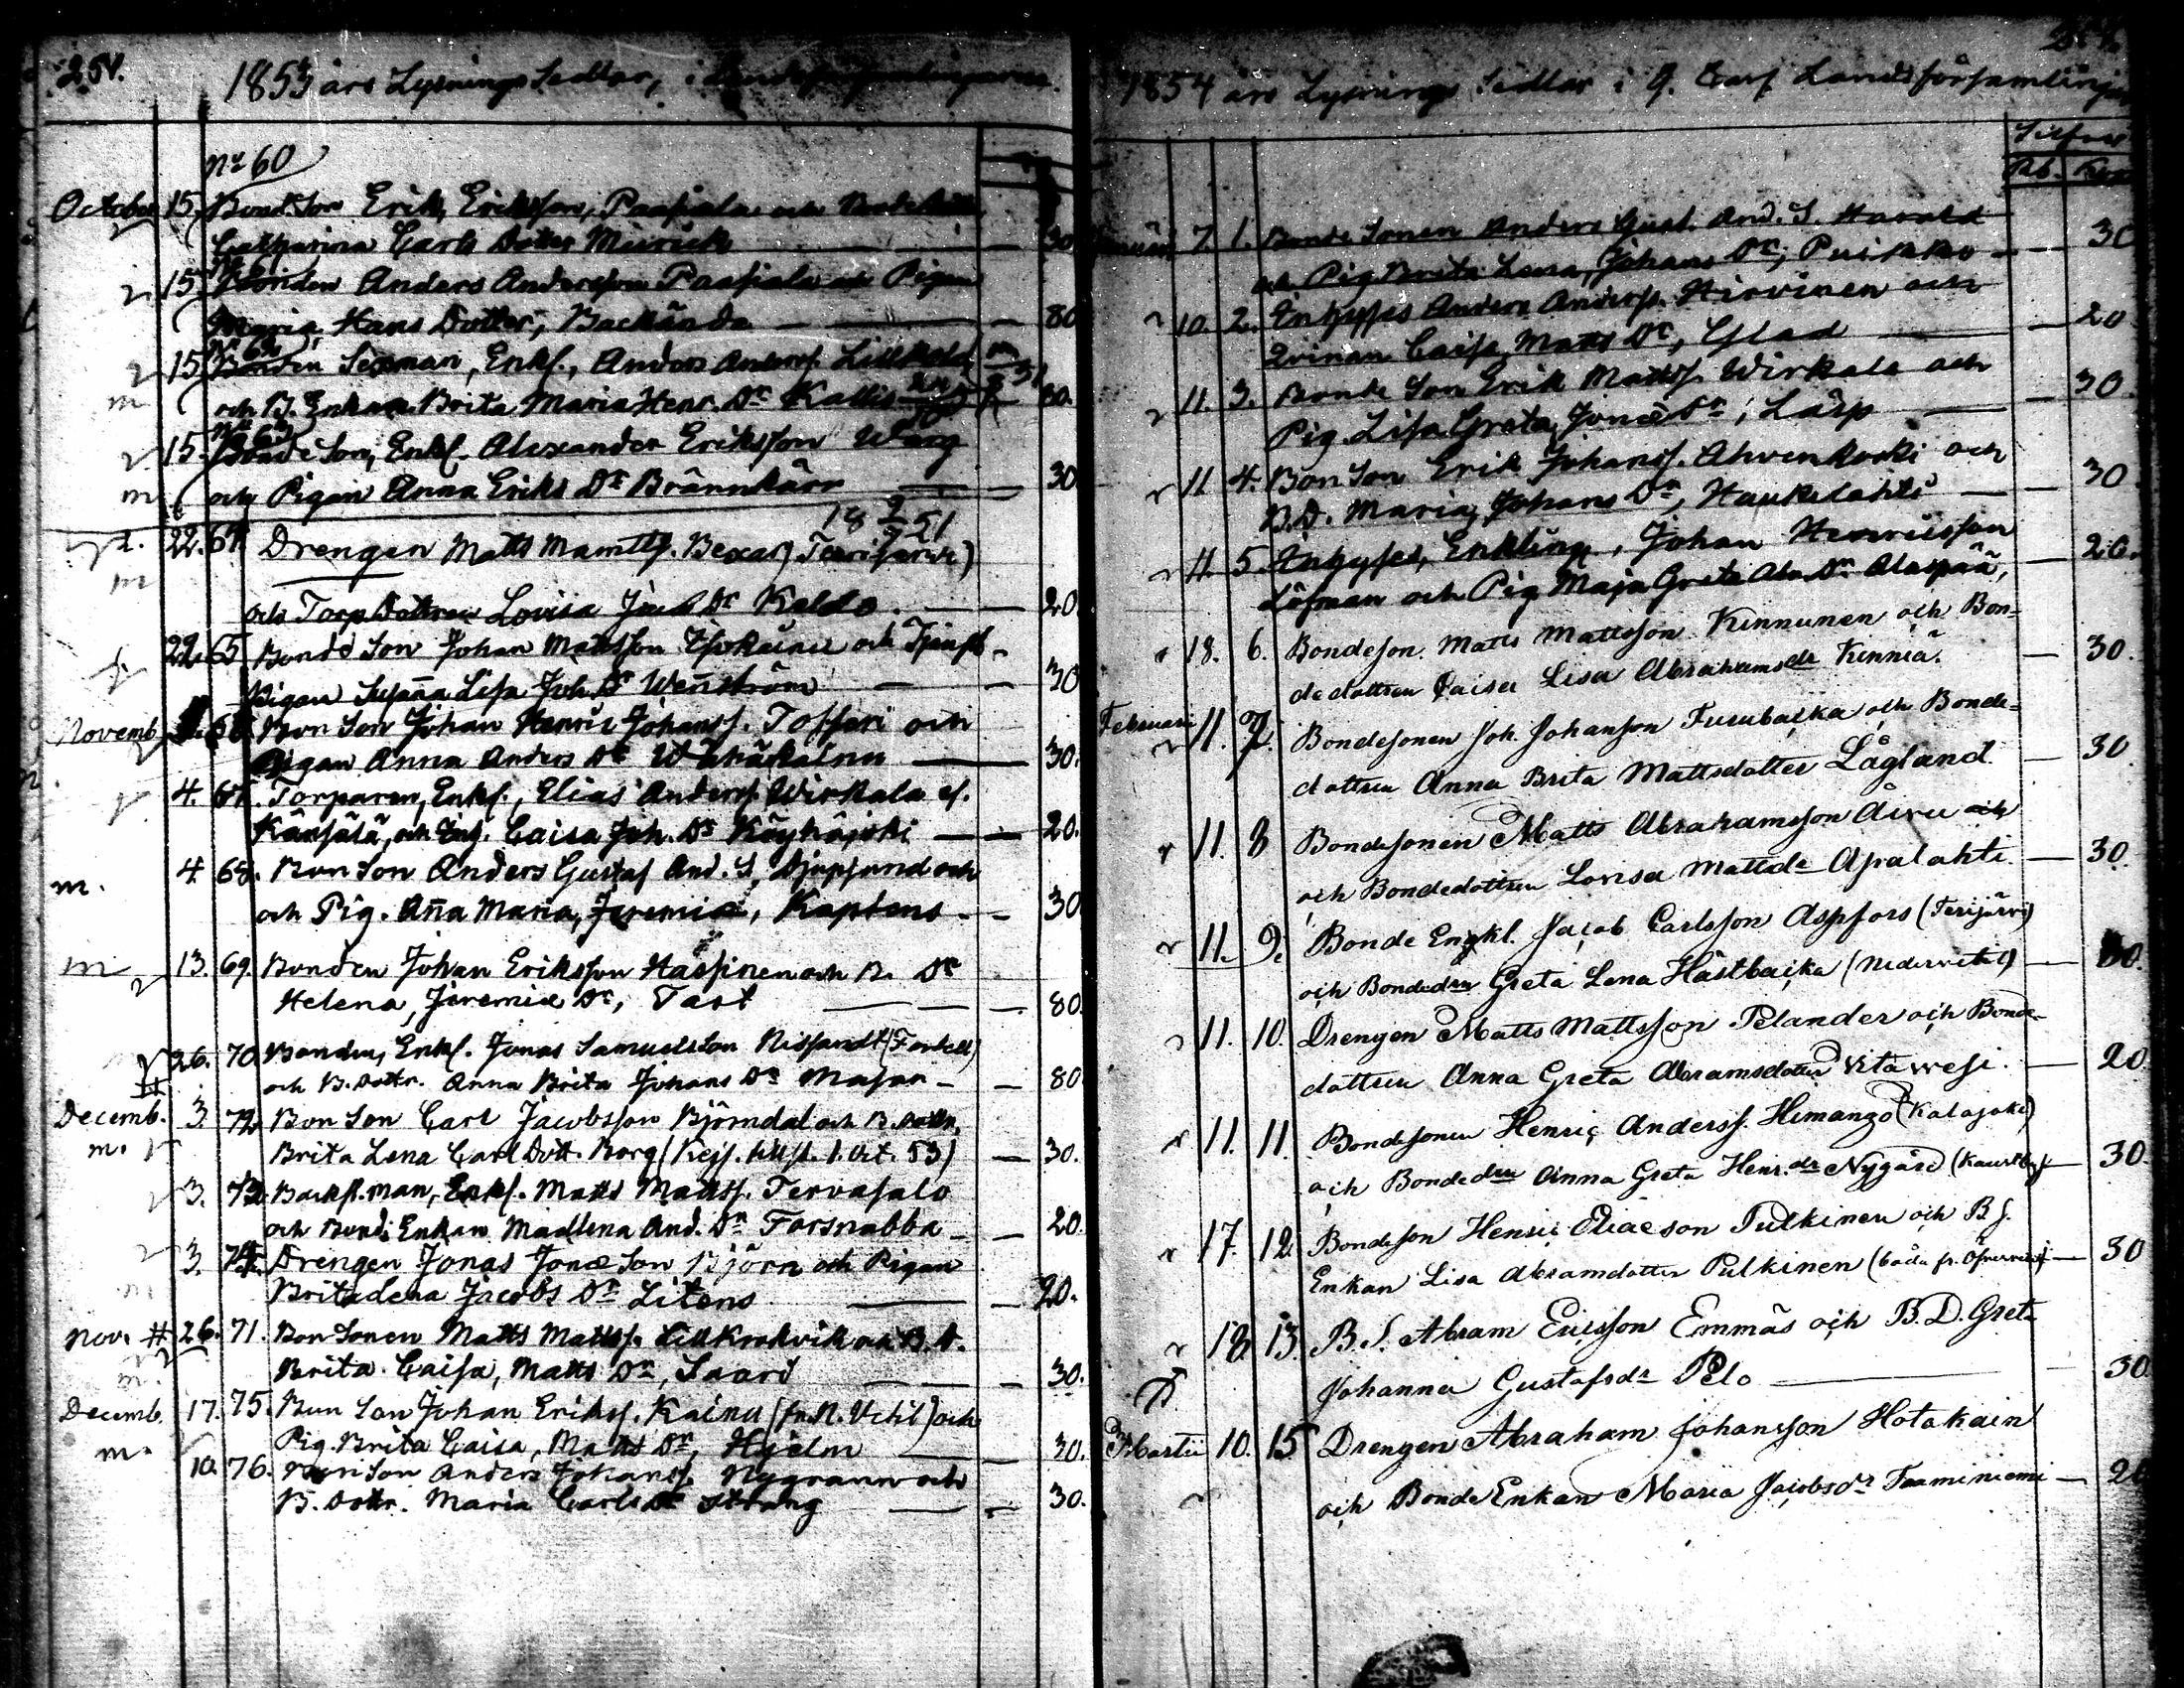 254.
1853 års Lysnings Sedlar, i
No 60
October 15. Bond Son Erik Eriksson, Paasiala och
Catharina Carls Dotter 30
15 Bonden Anders Andersson Paasiala och Pigan
Maria, Hans Dotter, Backända — 80
15 No 62 Bonden Sexman, Enkl., Anders Anders.
och B. Enkan Brita Maria Henr. Dr Kallis 80.
15. No 63 Bonde Son, Enkl. Alexander Eriksson Warg
och Pigan Anna Eriks Dr Brännkärr — 30
22. 64. Drengen Matts Mattss. Bexar (Terrijärwi)
och Torp Dottren Lovisa Jacobs Dr Kaldo. — 20
22. 65 Bonde Son Johan Mattsson och Tjenst-
Pigan Susanna Lisa Joh. Dr Wennström — 30
Novemb. Bon Son Johan Henric Johanss. Toffari och
Pigan Anna Anders Dr Wähäkainu — 30.
4. 67. Torparen, Enkl., Elias Anderss. Wirkala el.
Känsälä, och Enk. Caisa Joh. Dr Köyhäjoki — 20.
m. 4 68. Bon Son Anders Gustaf And. S. Djupsund och
och Pig. Anna Maria, Jeremiæ, Kaptens — 30
m 13. 69. Bonden Johan Eriksson Hassinen och B. Dr
Helena, Jeremiæ Dr, Tast — 80.
26. 70. Bonden, Enkl. Jonas Samuelsson Nissandt (Forsell)
och B. Dottr. Anna Brita Johans Dr — 80
Decemb. 3. 72. Bon Son Carl Jacobsson Björndal och B. Dottr.
m. Brita Lena Carl Dott. Borg (Kejs. tillst. 1. Oct. 53) — 30.
3. 73. Backst.man, Enkl. Matts Mattss. Tervasalo
och Bonde Enkan Madlena And. Dr Forsnabba — 20.
3. 74. Drengen Jonas Jonæ Son Björn och Pigan
Brita Lena Jacobs Dr Litens — 20.
Nov. # 26. 71. Bon Sonen Matts Mattss. Lillkrokvik och B. D.
m. Brita Caisa, Matts Dr, Saari — 30.
Decemb. 17. 75. Bon Son Johan Erikss. Kainu (fr. N. Vetil) och
m. Pig. Brita Caisa, Matts Dr, Hjelm — 30.
10. 76. Bon Son Anders Johanss. Nygrann och
B. Dottr. Maria Carls Dr Strang — 30.
1854 års Lysnings Sedlar i G. Carl. Landsförsamling
Silfver
Rb. Kop
Januari 7. 1. Bonde Sonen Anders Gust. And. S. Harald
och Pig Brita Lena, Johans Dr, Puikko — 30
10. 2. Inhyses Anders Anderss. Hirvinen och
Qvinan Caisa Matts Dr, Glad — 20
11. 3. Bonde Son Erik Mattss. Wirkala och
Pig. Lisa Greta Jonæ Dr, Läsp — 30.
11. 4. Bon Son Erik Johanss. Ahvenkoski och
B. D. Maria, Johans Dr, Haukilahti — 30
11. 5. Inhyses, Enkling, Johan Henricsson
Löfman och Pig Maja Greta Abr. Dr Alaspää, — 20.
18. 6. Bondeson Matts Mattsson Kinnunen och Bon-
dedottren Caisa Lisa Abrahamsdr Kinnia. — 30.
Februari 11. 7. Bondesonen Joh. Johanson Furubacka och Bonde-
dottren Anna Brita Mattsdotter Lågland. — 30.
11. 8 Bondesonen Matts Abrahamsson Aivu och
och Bondedottren Lovisa Mattsdr Apalahti — 30.
11. 9. Bonde Enkl. Jacob Carlsson Aspfors (Terijärvi)
och Bondedrn Greta Lena Hästbacka (Nedervetil) — 80.
11. 10. Drengen Matts Mattsson Pelander och Bonde-
dottren Anna Greta Abramsdotter Vitavesi. — 20.
11. 11. Bondesonen Henric Anderss. Himango (Kalajoki)
och Bondedrn Anna Greta Henr.dr Nygård (Kaustby) — 30.
17. 12. Bondeson Henric Eliaeson Pulkinen och B S.
Enkan Lisa Abramdotter Pulkinen (båda fr. Öfvervetil) — 30
18. 13. B. S. Abram Ericsson Emmäs och B. D. Greta
Johanna Gustafsdr Pelo — 30.
Martii 10. 15 Drengen Abraham Johansson Hotakain
och Bonde Enkan Maria Jacobsdr Taaminiemi — 20